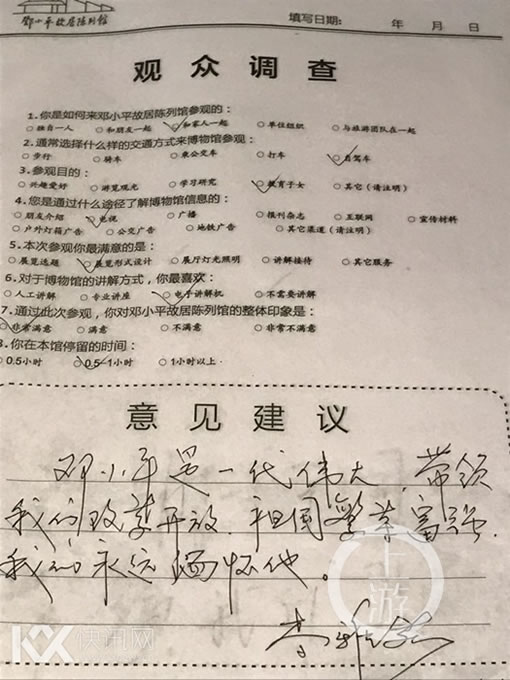 邓小平故居陈列馆
填写日期: 年 月 日
观众调查
1.你是如何来邓小平故居陈列馆参观的：
○独自一人 ○和朋友一起 ○和家人一起 ○单位组织 ○与旅游团队在一起
2.通常选择什么样的交通方式来博物馆参观：
○步行 ○骑车 ○乘公交车 ○打车 ○自驾车
3.参观目的：
○兴趣爱好 ○游览观光 ○学习研究 ○教育子女 ○其它(请注明)
4.您是通过什么途径了解博物馆信息的：
○朋友介绍 ○电视 ○广播 ○报刊杂志 ○互联网 ○宣传材料
○户外灯箱广告 ○公交广告 ○地铁广告 ○其它渠道(请注明)
5.本次参观你最满意的是：
○展览选题 ○展览形式设计 ○展厅灯光照明 ○讲解接待 ○其它服务
6.对于博物馆的讲解方式，你最喜欢：
○人工讲解 ○专业讲座 ○电子讲解机 ○不需要讲解
7.通过此次参观，你对邓小平故居陈列馆的整体印象是：
○非常满意 ○满意 ○不满意 ○非常不满意
8.你在本馆停留的时间：
○0.5小时 ○0.5-1小时 ○1小时以上
意见建议
邓小平是一代伟大，带领
我们改革开放，祖国繁荣富强，
我们永远缅怀他。
上游
KX 快讯网